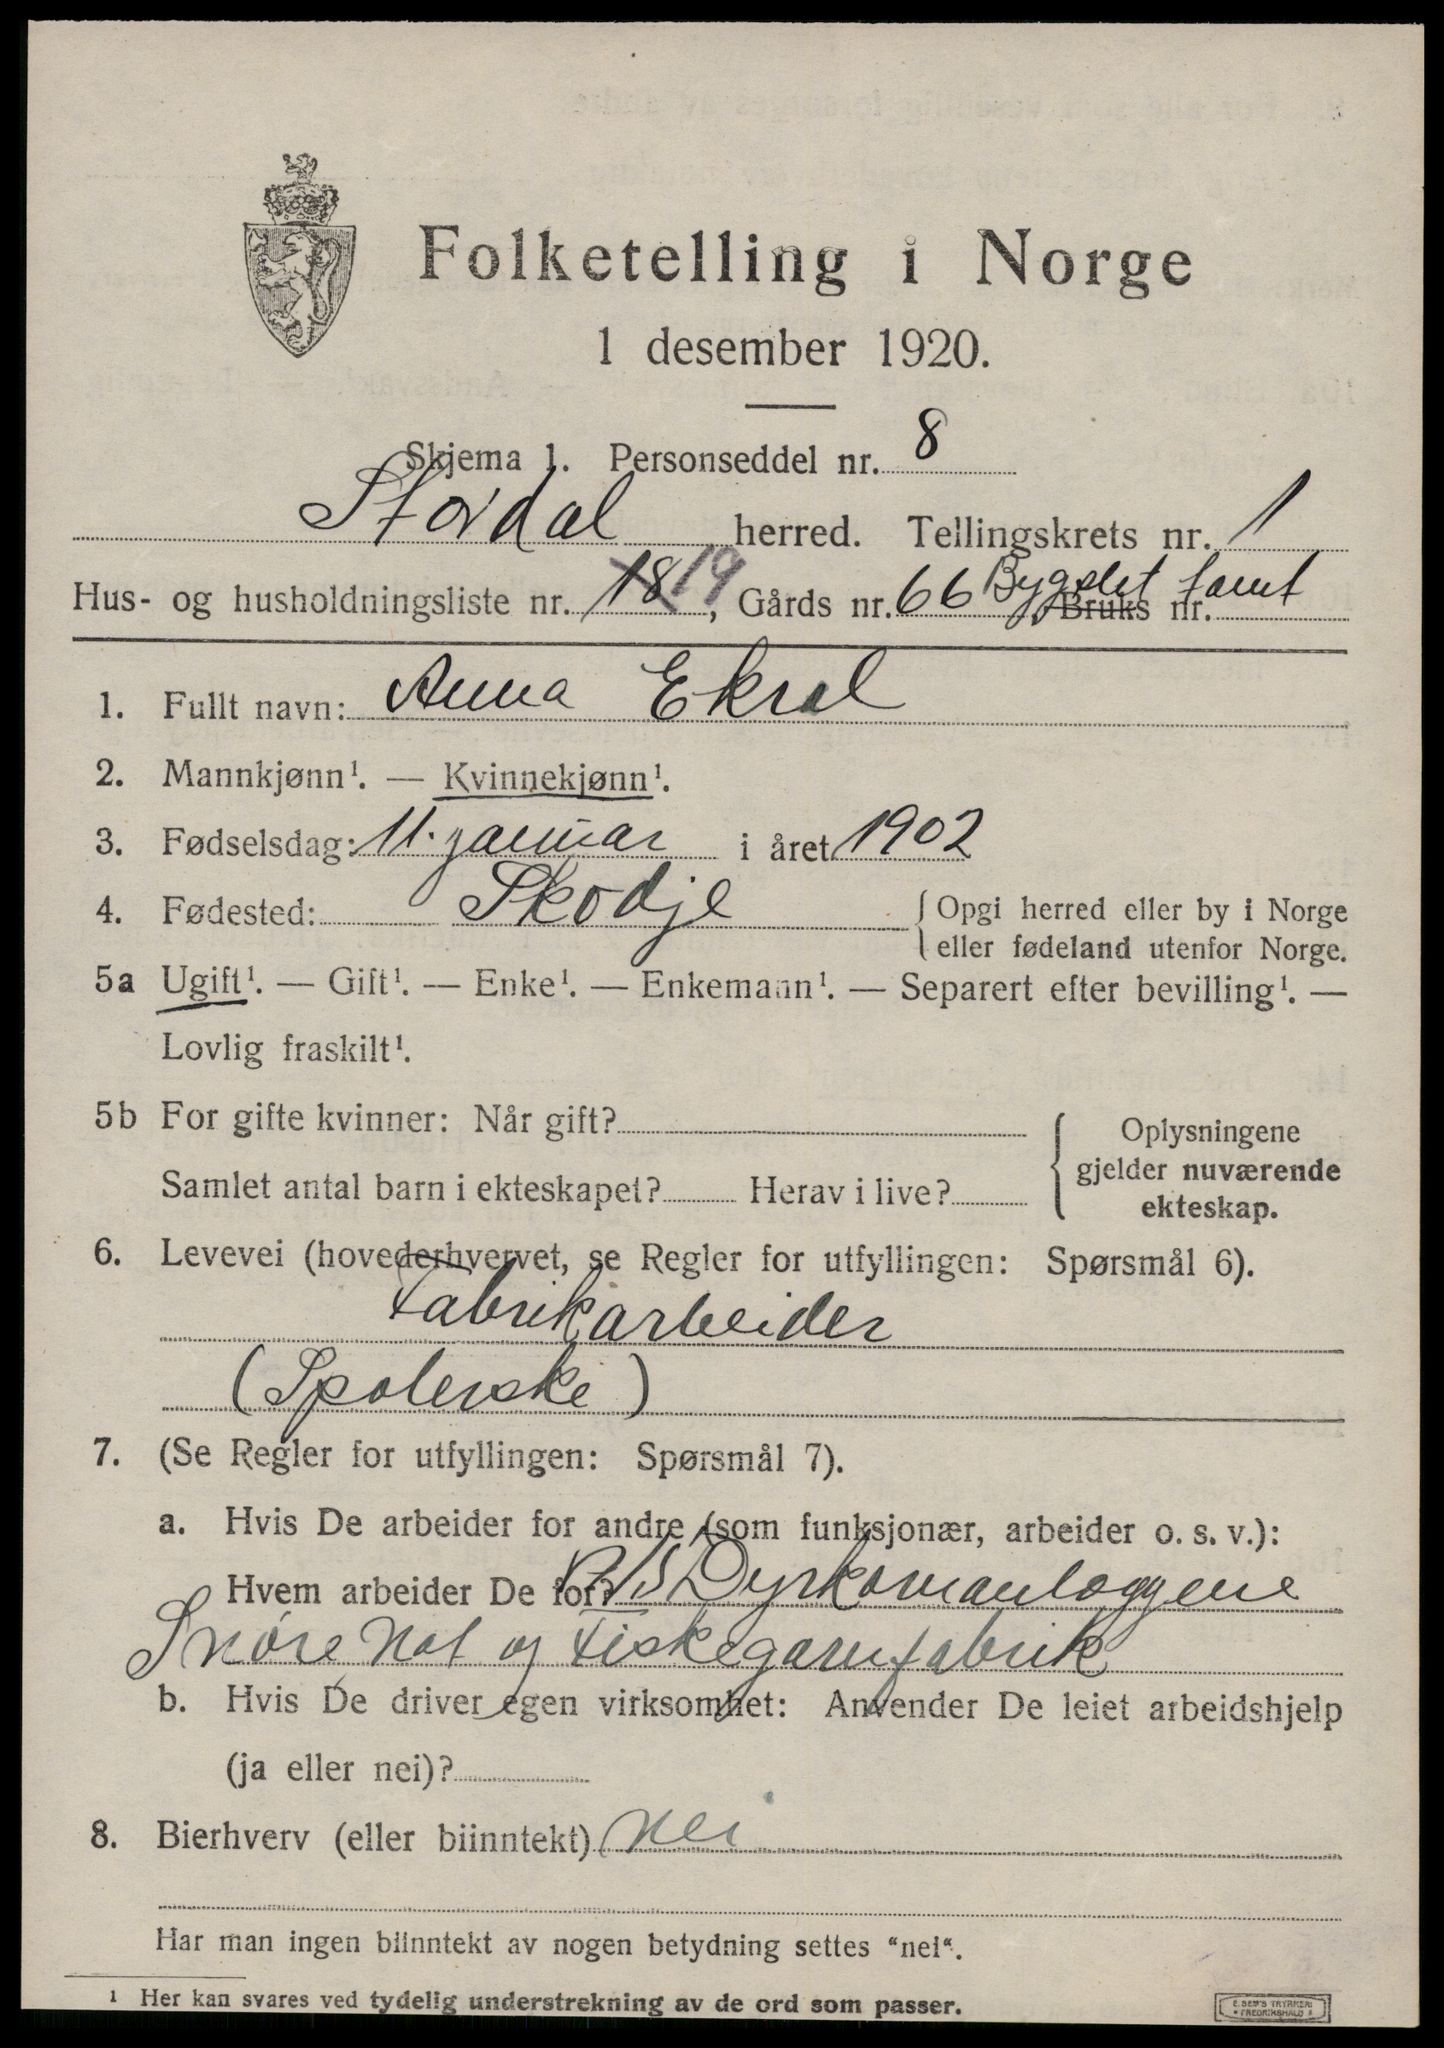 Folketelling i Norge
1 desember 1920.
Skjema 1. Personseddel nr. 8
Stordal herred. Tellingskrets nr. 1
Hus- og husholdningsliste nr. 18 19, Gårds nr. 66 Bygslet tomt, Bruks nr.
1. Fullt navn: Anna Ekrol
2. Mannkjønn¹. — Kvinnekjønn¹.
3. Fødselsdag: 11. januar i året 1902
4. Fødested: Skodje {Opgi herred eller by i Norge
eller fødeland utenfor Norge.
5a Ugift¹. — Gift¹. — Enke¹. — Enkemann¹. — Separert efter bevilling¹. —
Lovlig fraskilt¹.
5b For gifte kvinner: Når gift? {Oplysningene
gjelder nuværende
Samlet antal barn i ekteskapet? Herav i live?
ekteskap.
6. Levevei (hovederhvervet, se Regler for utfyllingen: Spørsmål 6).
Fabrikarbeider
(Spolerske)
7. (Se Regler for utfyllingen: Spørsmål 7).
a. Hvis De arbeider for andre (som funksjonær, arbeider o. s. v.):
Hvem arbeider De for? A/S Dyrkornanlæggene
Snøre Not og Fiskegarnfabrik
b. Hvis De driver egen virksomhet: Anvender De leiet arbeidshjelp
(ja eller nei)?
8. Bierhverv (eller biinntekt) nei
Har man ingen biinntekt av nogen betydning settes "nei".
¹ Her kan svares ved tydelig understrekning av de ord som passer.
E. SEM'S TRYKKERI
FREDRIKSHALD